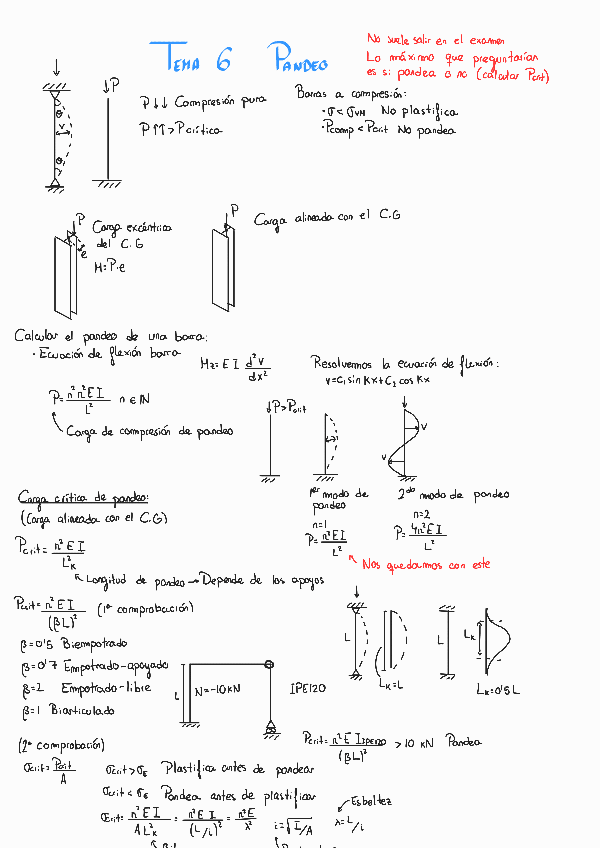 Tema 6 Pandeo
No suele salir en el examen
Lo máximo que preguntarían
es si pandea o no (calcular Pcrit)
P
θ
v
θ
P↓↓ Compresión pura
P↑↑ > Pcrítica
Barras a compresión:
· σ < σVM No plastifica
· Pcomp < Pcrit No pandea
P
e
Carga excéntrica
del C.G
M=P·e
P
Carga alineada con el C.G
Calcular el pandeo de una barra:
· Ecuación de flexión barra
Mz = E I d²v/dx²
Resolvemos la ecuación de flexión:
v=C₁ sin Kx + C₂ cos Kx
P = n²π²E I / L² n ∈ N
Carga de compresión de pandeo
P>Pcrit
v
v
Carga crítica de pandeo:
(Carga alineada con el C.G)
1er modo de
pandeo
n=1
P = π²E I / L²
2do modo de pandeo
n=2
P = 4π²E I / L²
Nos quedarmos con este
Pcrit = π² E I / L²K
Longitud de pandeo → Depende de los apoyos
Pcrit = π² E I / (βL)² (1ª comprobación)
β=0'5 Biempotrado
β=0'7 Empotrado-apoyado
β=2 Empotrado-libre
β=1 Biarticulado
L
N=-10KN
IPE120
L
LK=L
L
LK
LK=0'5L
Pcrit = π² E I IPE120 / (βL)² > 10 KN Pandea
(2ª comprobación)
σcrit = Pcrit / A
σcrit > σE Plastifica antes de pandear
σcrit < σE Pandea antes de plastificar
σcrit = π² E I / A L²K = π² E I / (L/i)² = π² E / λ²
i = √I/A
Esbeltez
λ = L/i